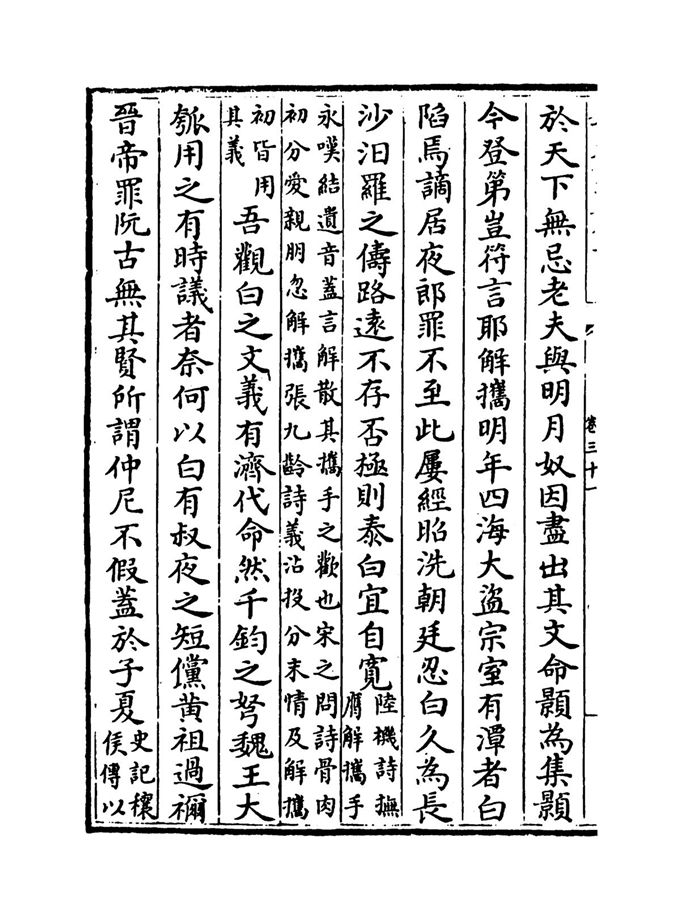 於天下無忌老夫與明月奴因盡出其文命顥為集顥
今登第豈符言耶解攜明年四海大盜宗室有潭者白
陷焉謫居夜郎罪不至此屢經昭洗朝廷忍白久為長
沙汨羅之儔路遠不存否極則泰白宜自寛陸機詩撫膺解攜手
永嘆結遺音蓋言解散其攜手之歡也宋之問詩骨肉
初分愛親朋忽解攜張九齡詩義沾投分末情及解攜
初皆用其義吾觀白之文義有濟代命然千鈞之弩魏王大
瓠用之有時議者奈何以白有叔夜之短儻黄祖過禰
晉帝罪阮古無其賢所謂仲尼不假蓋於子夏史記穰侯傳以
卷三十一